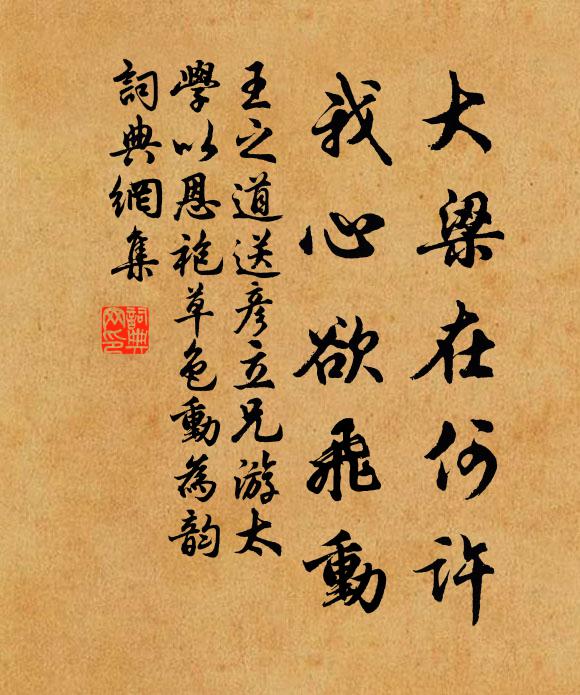 大梁在何許
我心欲飛動
王之道送彥立兄游太
學以恩袍草色動為韵
詞典網集
詞典
网印